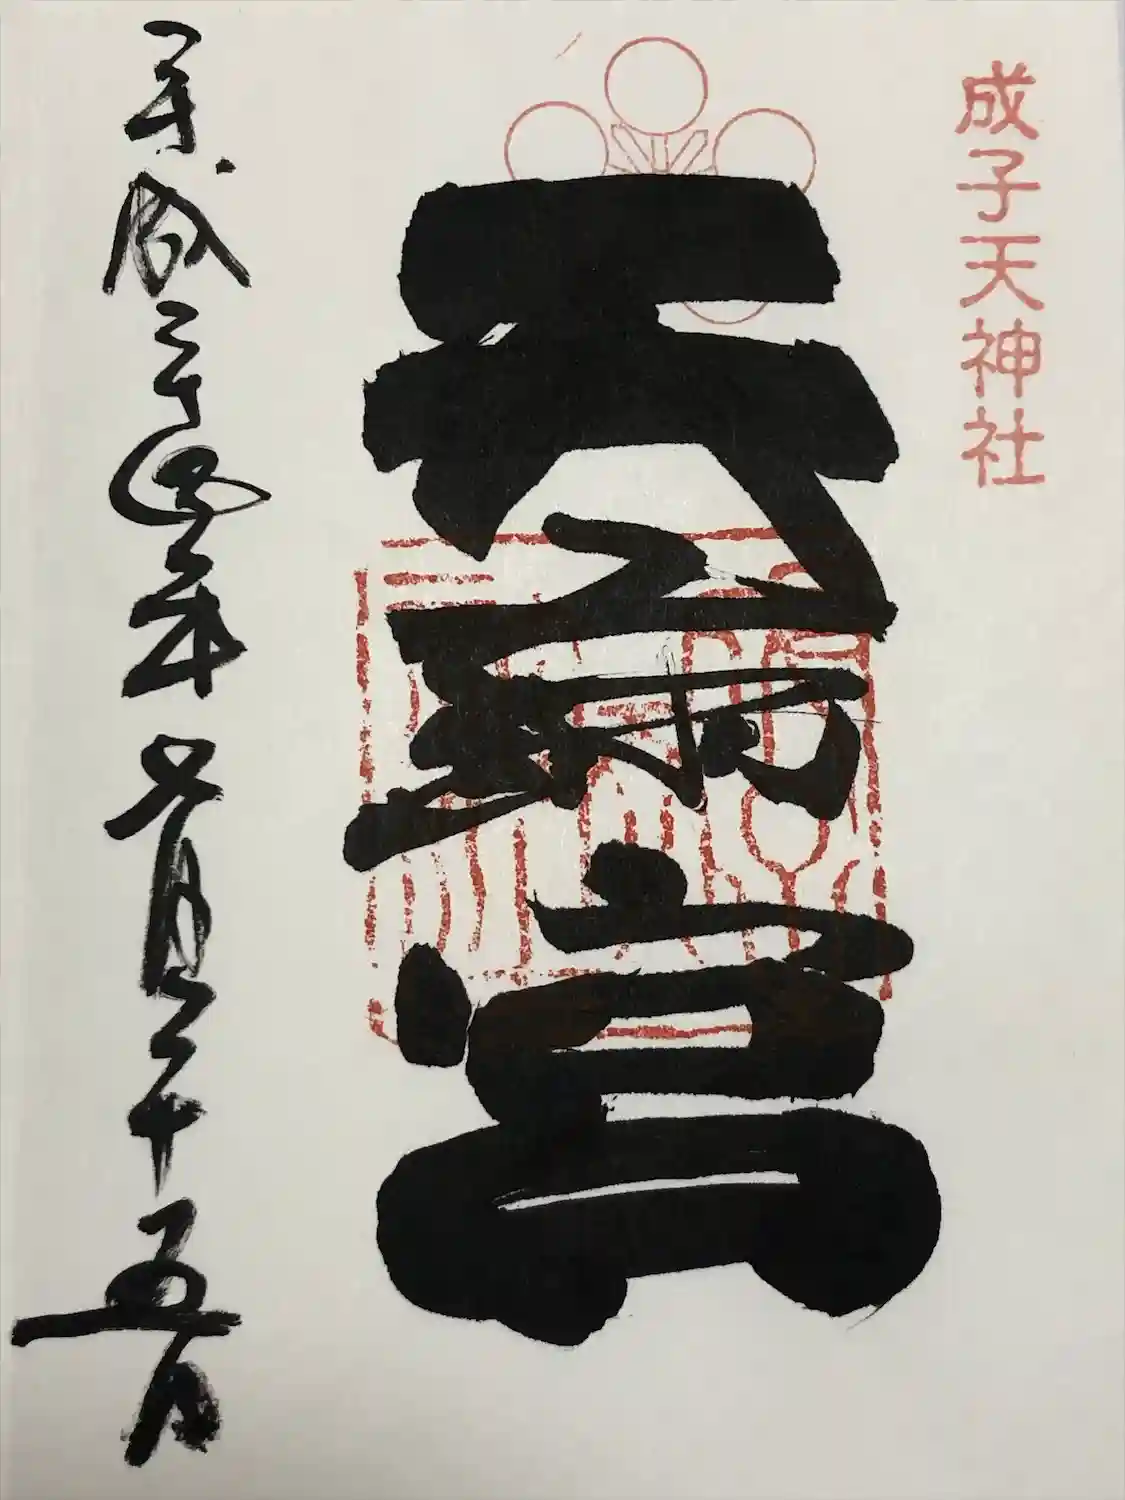 成子天神社
天満宮
平成二十四年 月二十五日